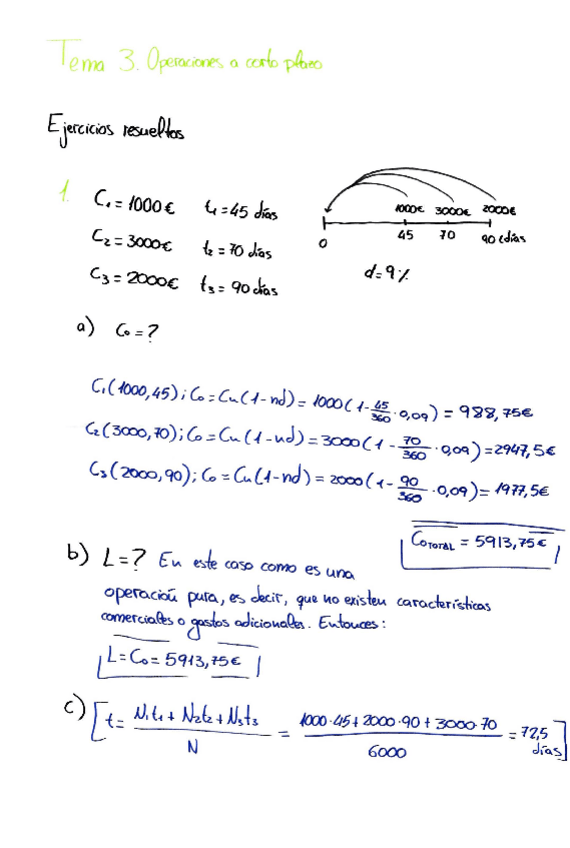 Tema 3. Operaciones a corto plazo
Ejercicios resueltos
1. C₁ = 1000€ t₁ = 45 días
C₂ = 3000€ t₂ = 70 días
C₃ = 2000€ t₃ = 90 días
1000€ 3000€ 2000€
0 45 70 90 (días)
d = 9%
a) C₀ = ?
C₁(1000,45); C₀ = Cn(1-nd) = 1000(1 - 45/360 · 0,09) = 988,75€
C₂(3000,70); C₀ = Cn(1-nd) = 3000(1 - 70/360 · 0,09) = 2947,5€
C₃(2000,90); C₀ = Cn(1-nd) = 2000(1 - 90/360 · 0,09) = 1977,5€
C₀ TOTAL = 5913,75€
b) L = ? En este caso como es una
operación pura, es decir, que no existen características
comerciales o gastos adicionales. Entonces:
L = C₀ = 5913,75€
c) t = N₁t₁ + N₂t₂ + N₃t₃ / N = 1000·45 + 2000·90 + 3000·70 / 6000 = 72,5 días